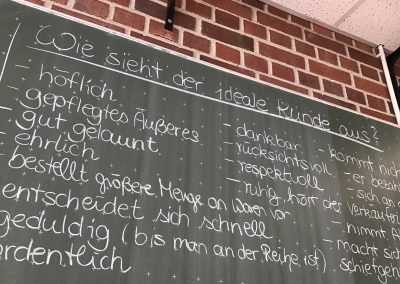 Wie sieht der ideale Kunde aus?
- höflich
- gepflegtes Äußeres
- gut gelaunt
- ehrlich
- bestellt größere Menge an Waren vor
entscheidet sich schnell
geduldig (bis man an der Reihe ist)
ordentlich
- dankbar
- rücksichtsvoll
- respektvoll
- ruhig, hört der Verkäuferi
- kommt nich
- er
- sich an
- nimmt
- macht sich